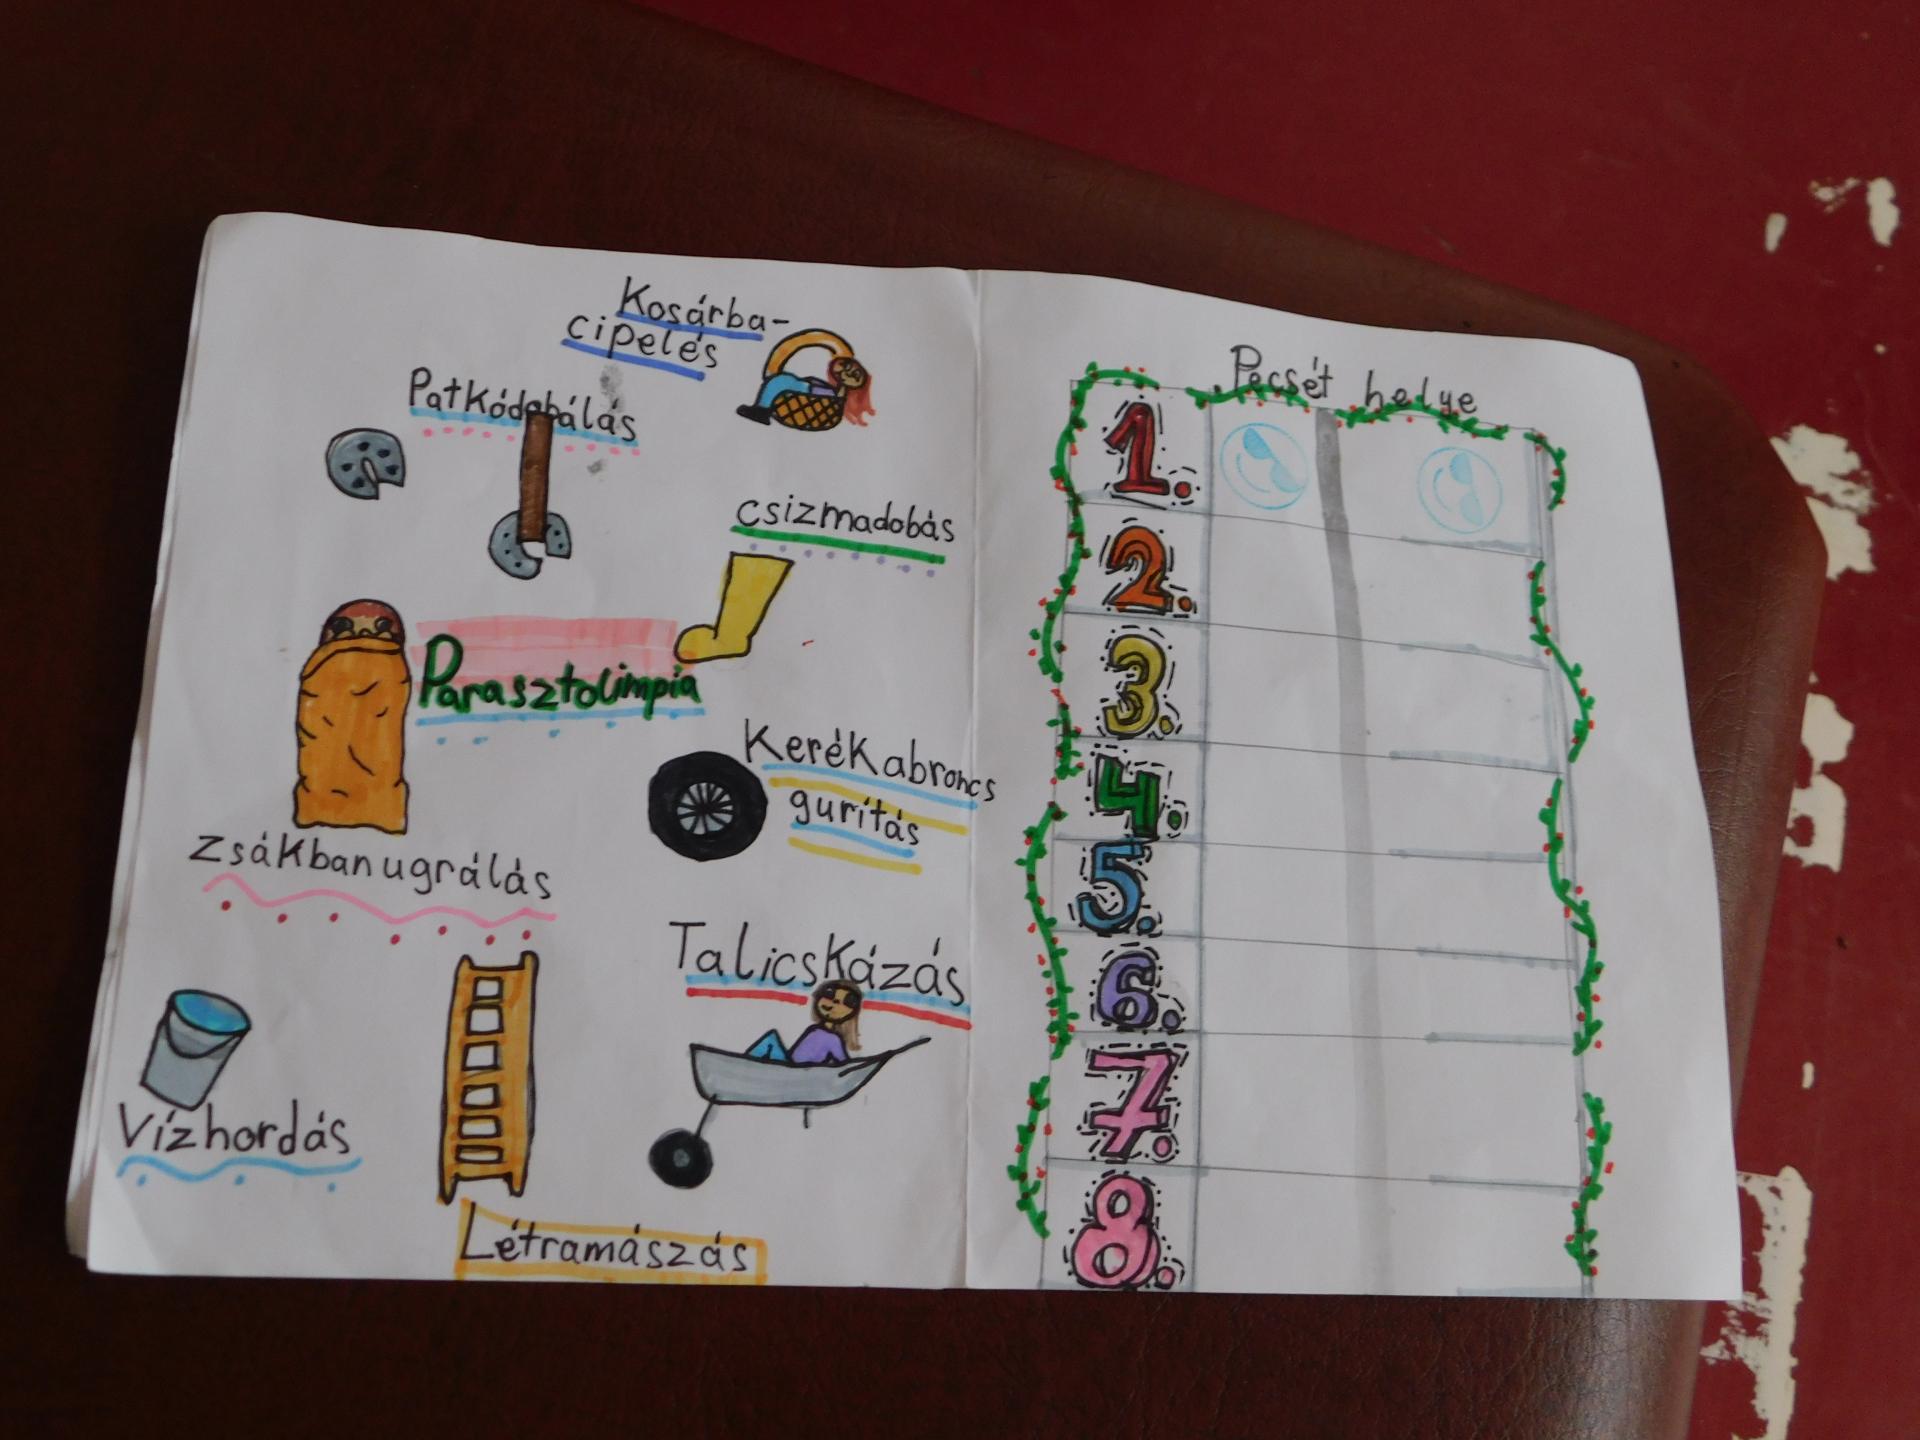 Kosárba-
cipelés
Patkódobálás
csizmadobás
Parasztolimpia
Kerékabroncs
gurítás
zsákbanugrálás
Talicskázás
Vízhordás
Létramászás
Pecsét helye
1.
2.
3.
4.
5.
6.
7.
8.